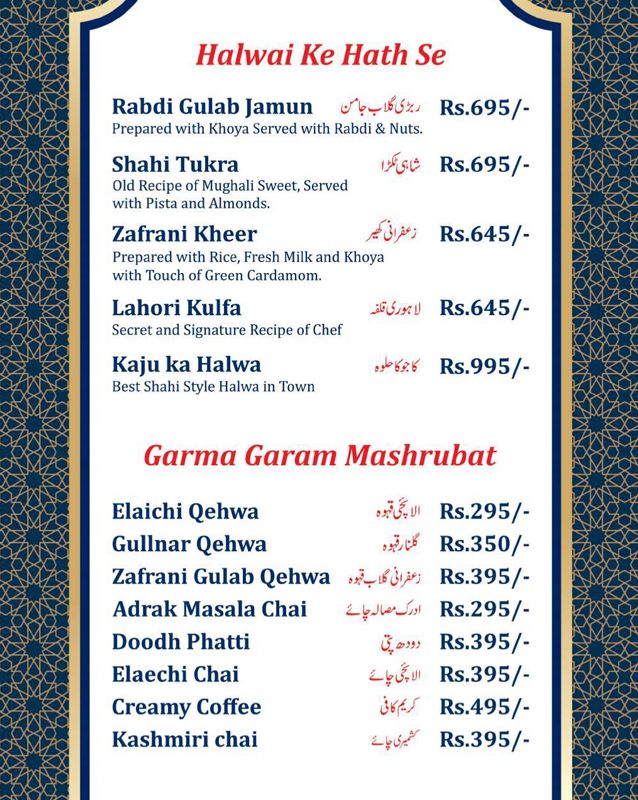 Halwai Ke Hath Se
Rabdi Gulab Jamun ربڑی گلاب جامن Rs.695/-
Prepared with Khoya Served with Rabdi & Nuts.
Shahi Tukra شاہی ٹکڑا Rs.695/-
Old Recipe of Mughali Sweet, Served
with Pista and Almonds.
Zafrani Kheer زعفرانی کھیر Rs.645/-
Prepared with Rice, Fresh Milk and Khoya
with Touch of Green Cardamom.
Lahori Kulfa لاہوری قلفہ Rs.645/-
Secret and Signature Recipe of Chef
Kaju ka Halwa کاجو کا حلوہ Rs.995/-
Best Shahi Style Halwa in Town
Garma Garam Mashrubat
Elaichi Qehwa الائچی قہوہ Rs.295/-
Gullnar Qehwa گلنار قہوہ Rs.350/-
Zafrani Gulab Qehwa زعفرانی گلاب قہوہ Rs.395/-
Adrak Masala Chai ادرک مصالہ چائے Rs.295/-
Doodh Phatti دودھ پتی Rs.395/-
Elaechi Chai الائچی چائے Rs.395/-
Creamy Coffee کریم کافی Rs.495/-
Kashmiri chai کشمیری چائے Rs.395/-